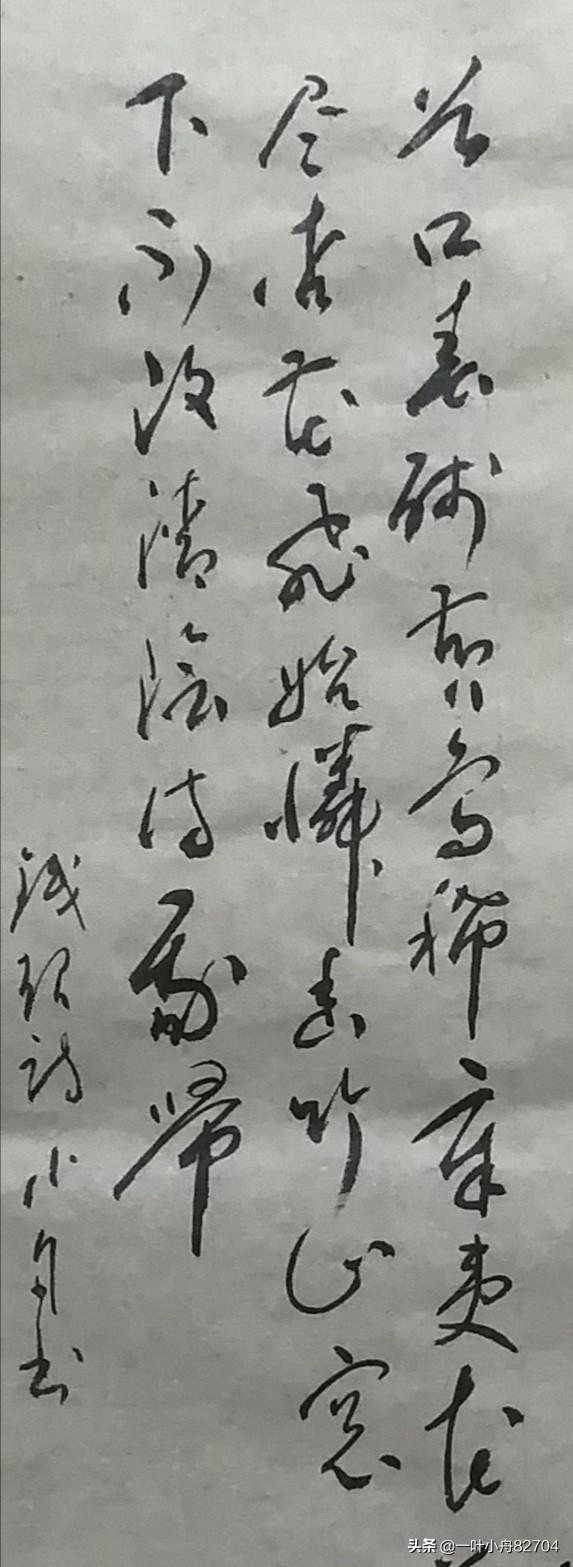 谷口春残黄鸟稀辛夷花
尽杏花飛始憐幽竹山窗
下不改清陰待我歸
钱起诗小舟书
头条 @一叶小舟82704